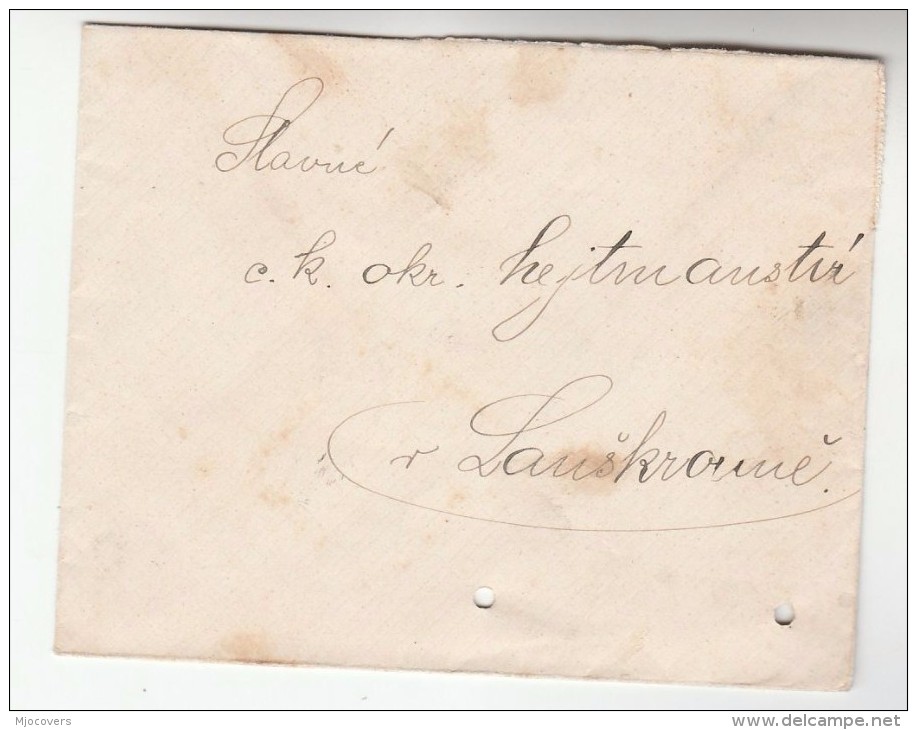 Slavné
c. k. okr. hejtmanství
v Lanškrouně.
Mjocovers
www.delcampe.net